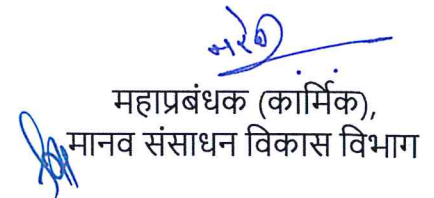 महाप्रबंधक (कार्मिक),
मानव संसाधन विकास विभाग